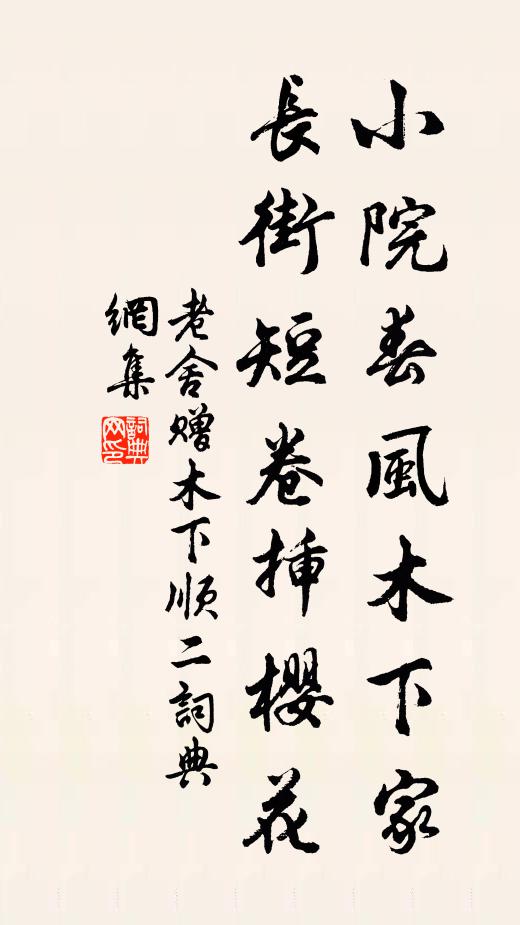 小院春風木下家
長街短卷插櫻花
老舍贈木下順二詞典
網集
詞典
网印